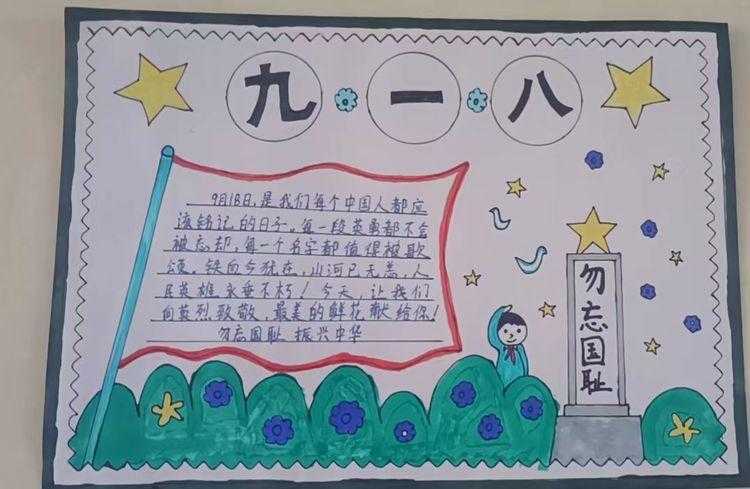 九一八
9月18日，是我们每个中国人都应
该铭记的日子。每一段英勇都不会
被忘却，每一个名字都值得被歌
颂。铁血今犹在，山河已无恙，人
民英雄永垂不朽！今天，让我们
向英烈致敬，最美的鲜花献给你！
勿忘国耻 振兴中华
勿忘国耻